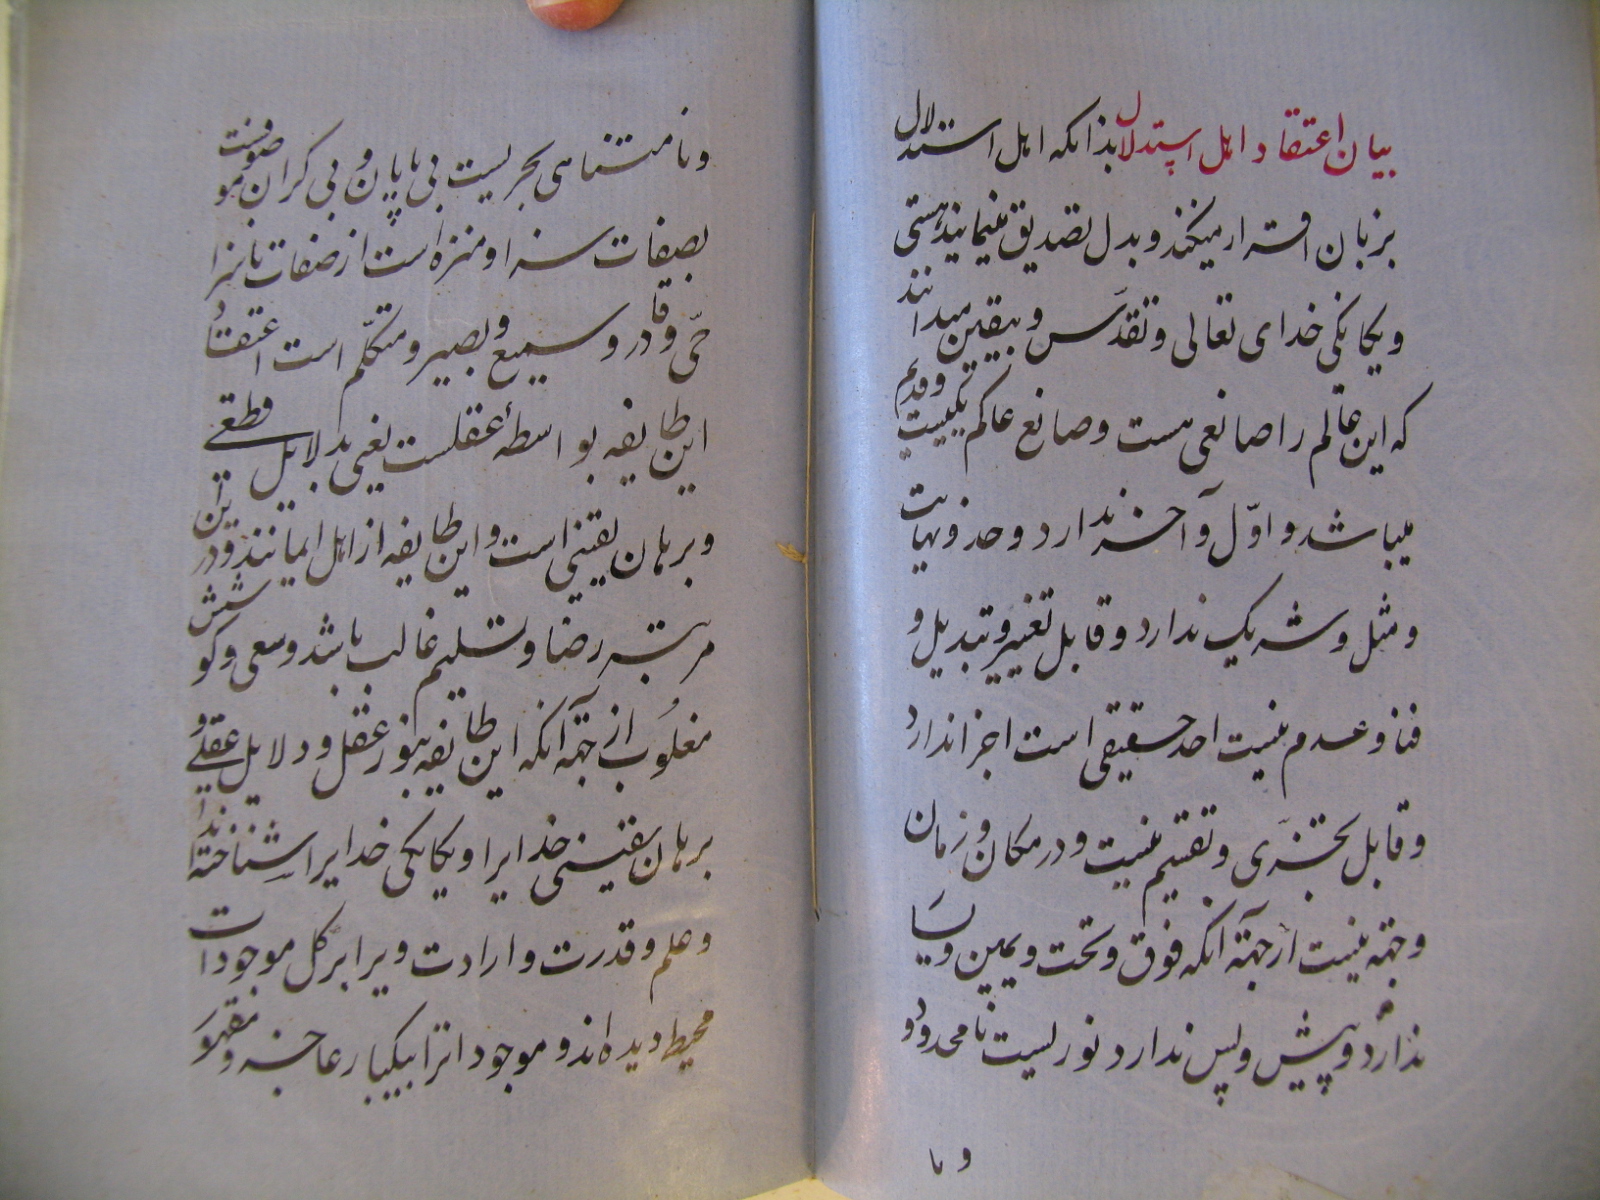 بیان اعتقاد اهل استدلال بدانکه اهل استدلال
بزبان اقرار میکنند و بدل تصدیق مینمایند هستی
و یکانکی خدای تعالی و تقدّس و بیقین میدانند
که این عالم را صانعی هست و صانع عالم یکیست و قدیم
میباشد و اوّل و آخر ندارد و حد و نهایت
و مثل و شریک ندارد و قابل تغییر و تبدیل و
فنا و عدم نیست احد حقیقی است اجزا ندارد
و قابل تجزّی و تقسیم نیست و در مکان و زمان
و جهة نیست از جهة آنکه فوق و تحت و یمین و یسار
ندارد و پیش و پس ندارد نوریست نامحدود و
و نا
و نامتناهی بحریست بی پایان و بی کران موصوفست
بصفات سزا و منزه است از صفات ناسزا
حّی و قادر و سمیع و بصیر و متکلّم است اعتقاد
این طایفه بواسطهٔ عقلست یعنی بدلایل قطعی
و برهان یقینی است و این طایفه از اهل ایمانند و در این
مرتبه رضا و تسلیم غالب باشد و سعی و کوشش
مغلُوب از جهة آنکه این طایفه بنور عقل و دلایل عقلی و
برهان یقینی خدایرا و یکانکی خدایرا شناخته‌اند
و علم و قدرت و ارادت ویرا بر کل موجودات
محیط دیده‌اند و موجودات را بیکبار عاجز و مقهور